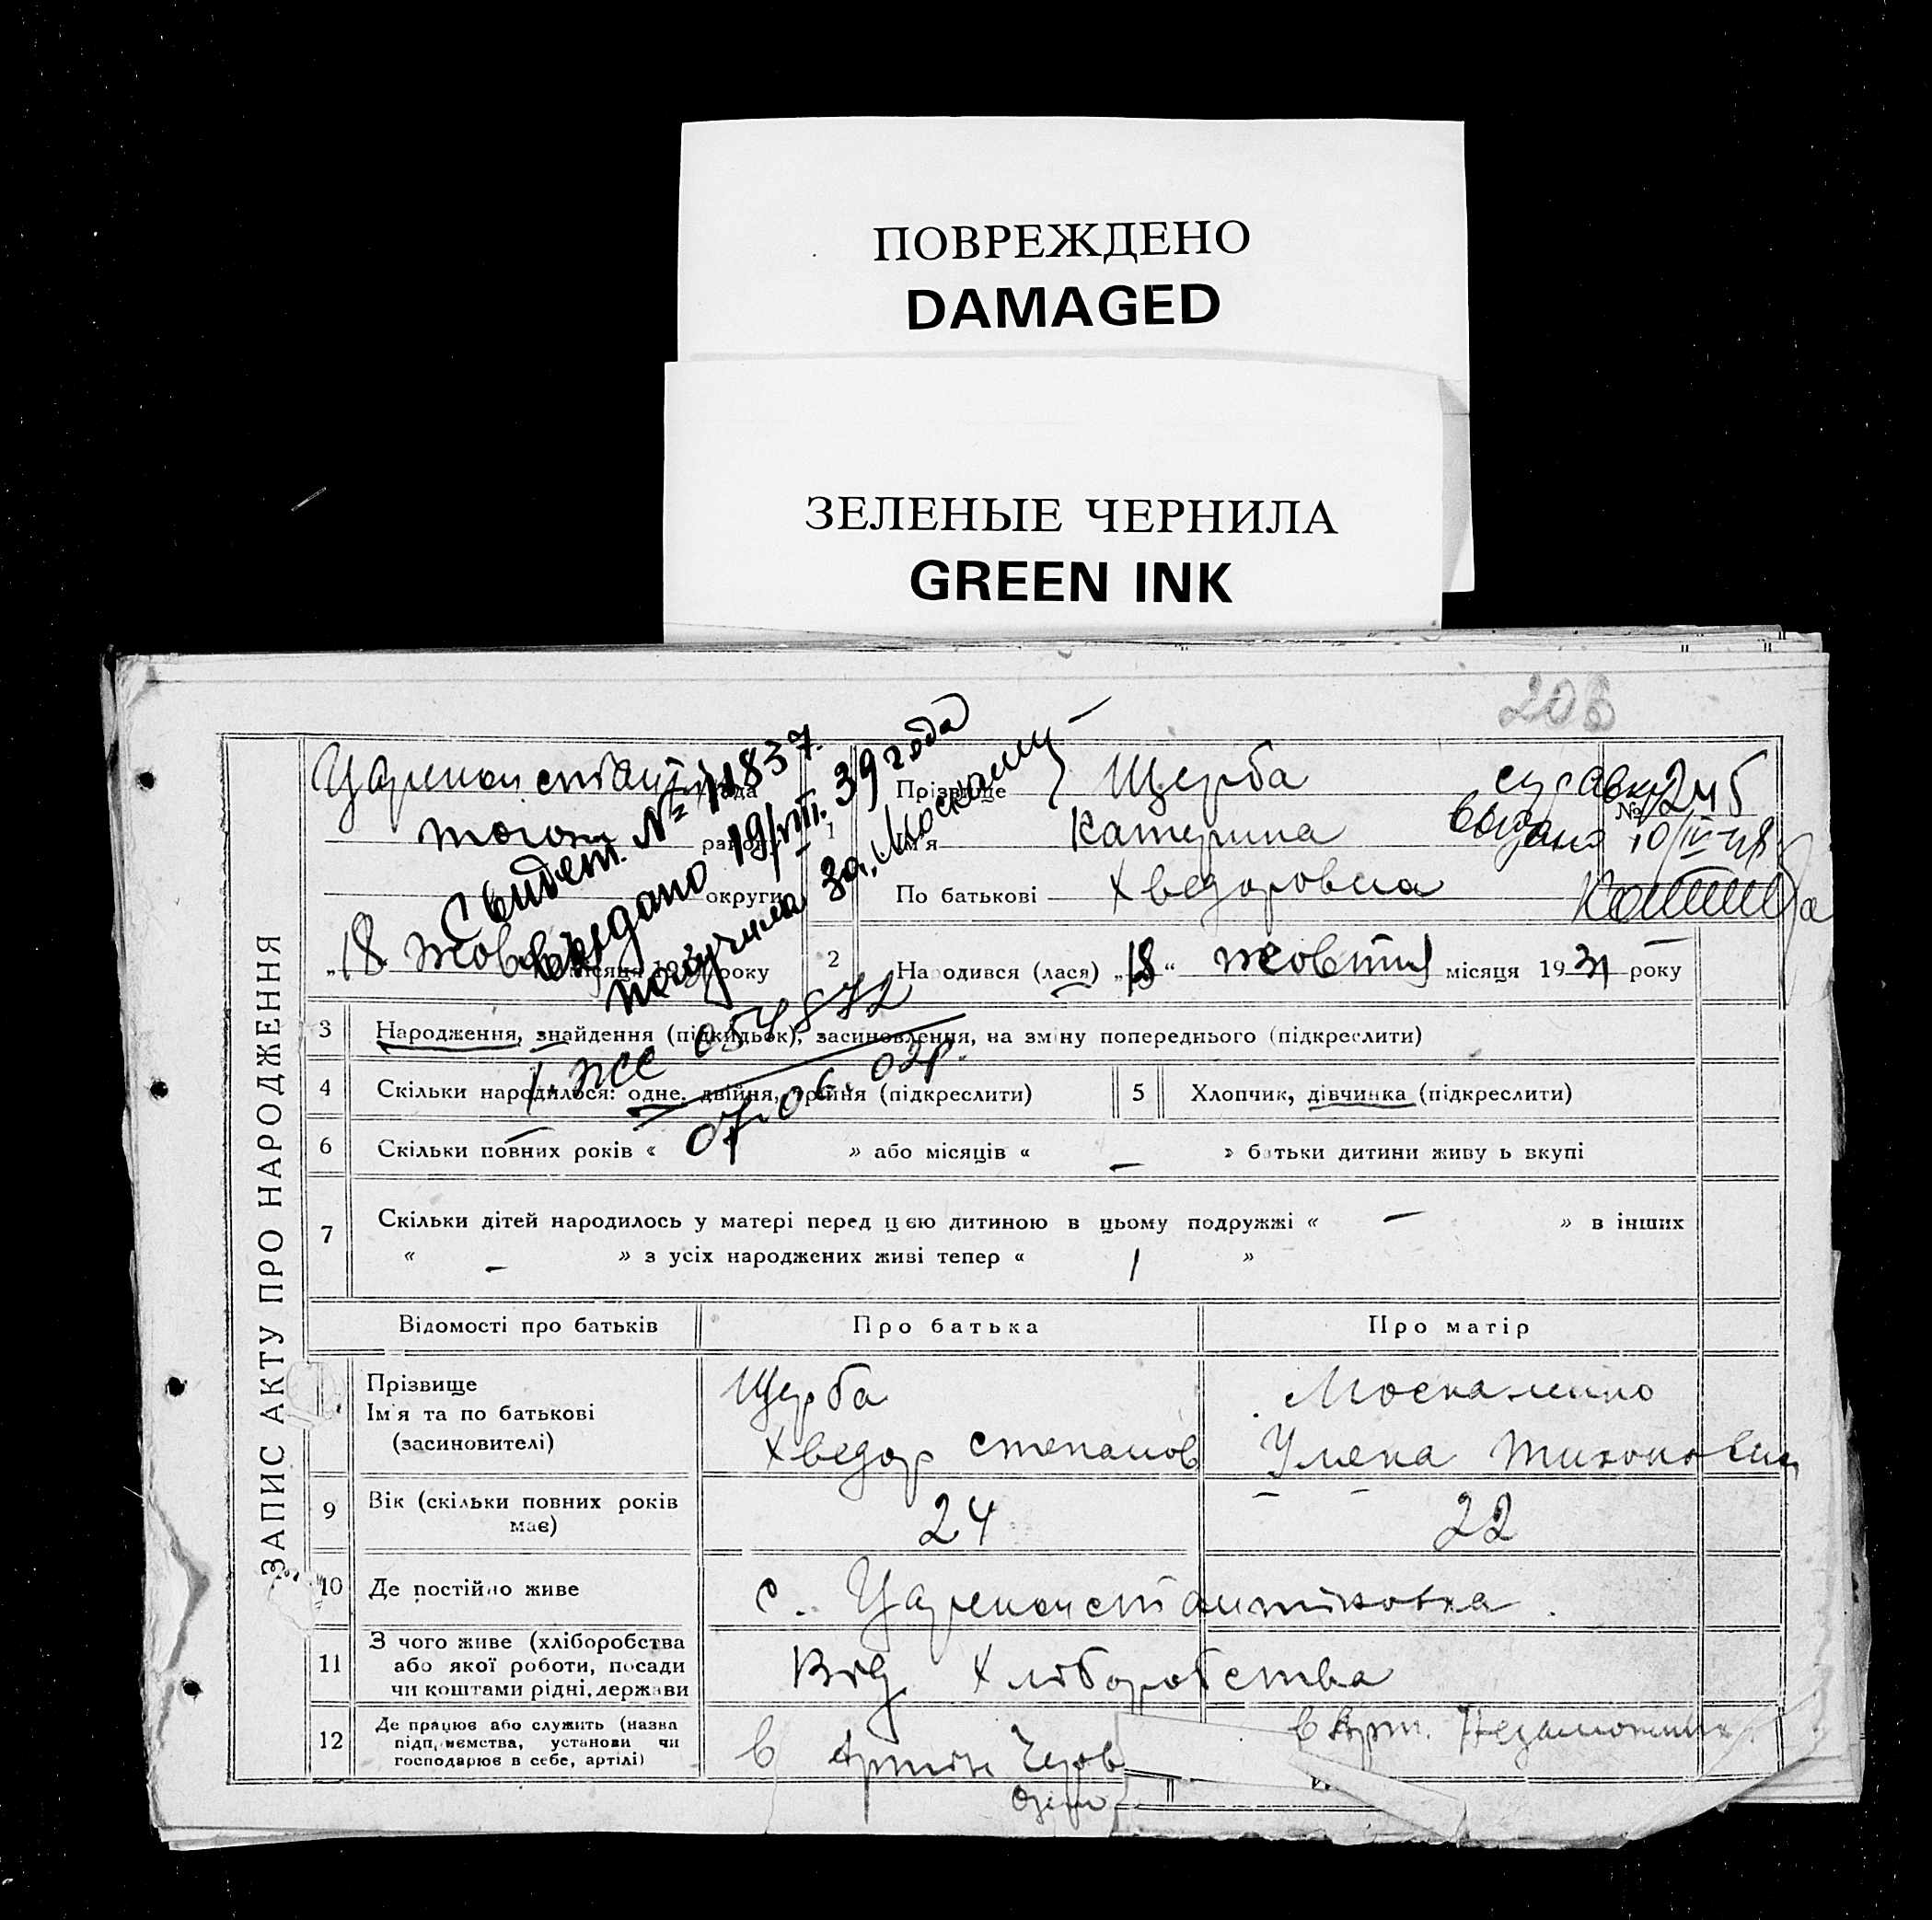 ПОВРЕЖДЕНО
DAMAGED
ЗЕЛЕНЫЕ ЧЕРНИЛА
GREEN INK
206
ЗАПИС АКТУ ПРО НАРОДЖЕННЯ
рада
району
округи
"18 місяця 193 року
Свидет. № 11837.
выдано 19/VIII. 39 года
получила За, Москалец
1 Прізвище Щерба
Ім'я Катерина
По батькові Хведоровна
№ 245
выдано 10/IV-48
2 Народився (лася) „18“ жовтня місяця 1931 року
3 Народження, знайдення (підкидьок), засиновлення, на зміну попереднього (підкреслити)
4 Скільки народилося: одне, двійня, трійня (підкреслити) 5 Хлопчик, дівчинка (підкреслити)
07.06.02р.
6 Скільки повних років « » або місяців « — » батьки дитини живуть вкупі
7 Скільки дітей народилось у матері перед цією дитиною в цьому подружжі « — » в інших
« — » з усіх народжених живі тепер « 1 »
Відомості про батьків Про батька Про матір
Прізвище Щерба Москаленко
Ім'я та по батькові
(засиновителі) Хведор Степанов Уляна Тихоновна
9 Вік (скільки повних років
має) 24 22
10 Де постійно живе с. Цареконстантіновка.
11 З чого живе (хліборобства
або якої роботи, посади
чи коштами рідні, держави Від хліборобства
12 Де працює або служить (назва
підприємства, установи чи
господарює в себе, артілі) в Артілі Черв в Арт. Незаможник